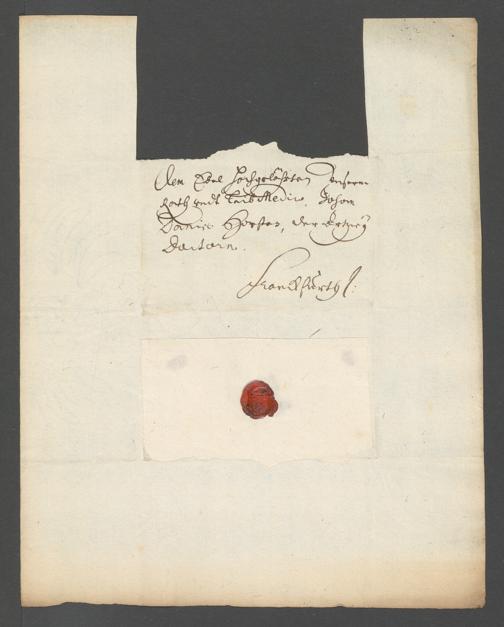 Dem Edel Hochgelehrten unserm
Rath undt LeibMedic. Johan
Daniel Horsten, der Artzney
Doctorn.
Franckfurth